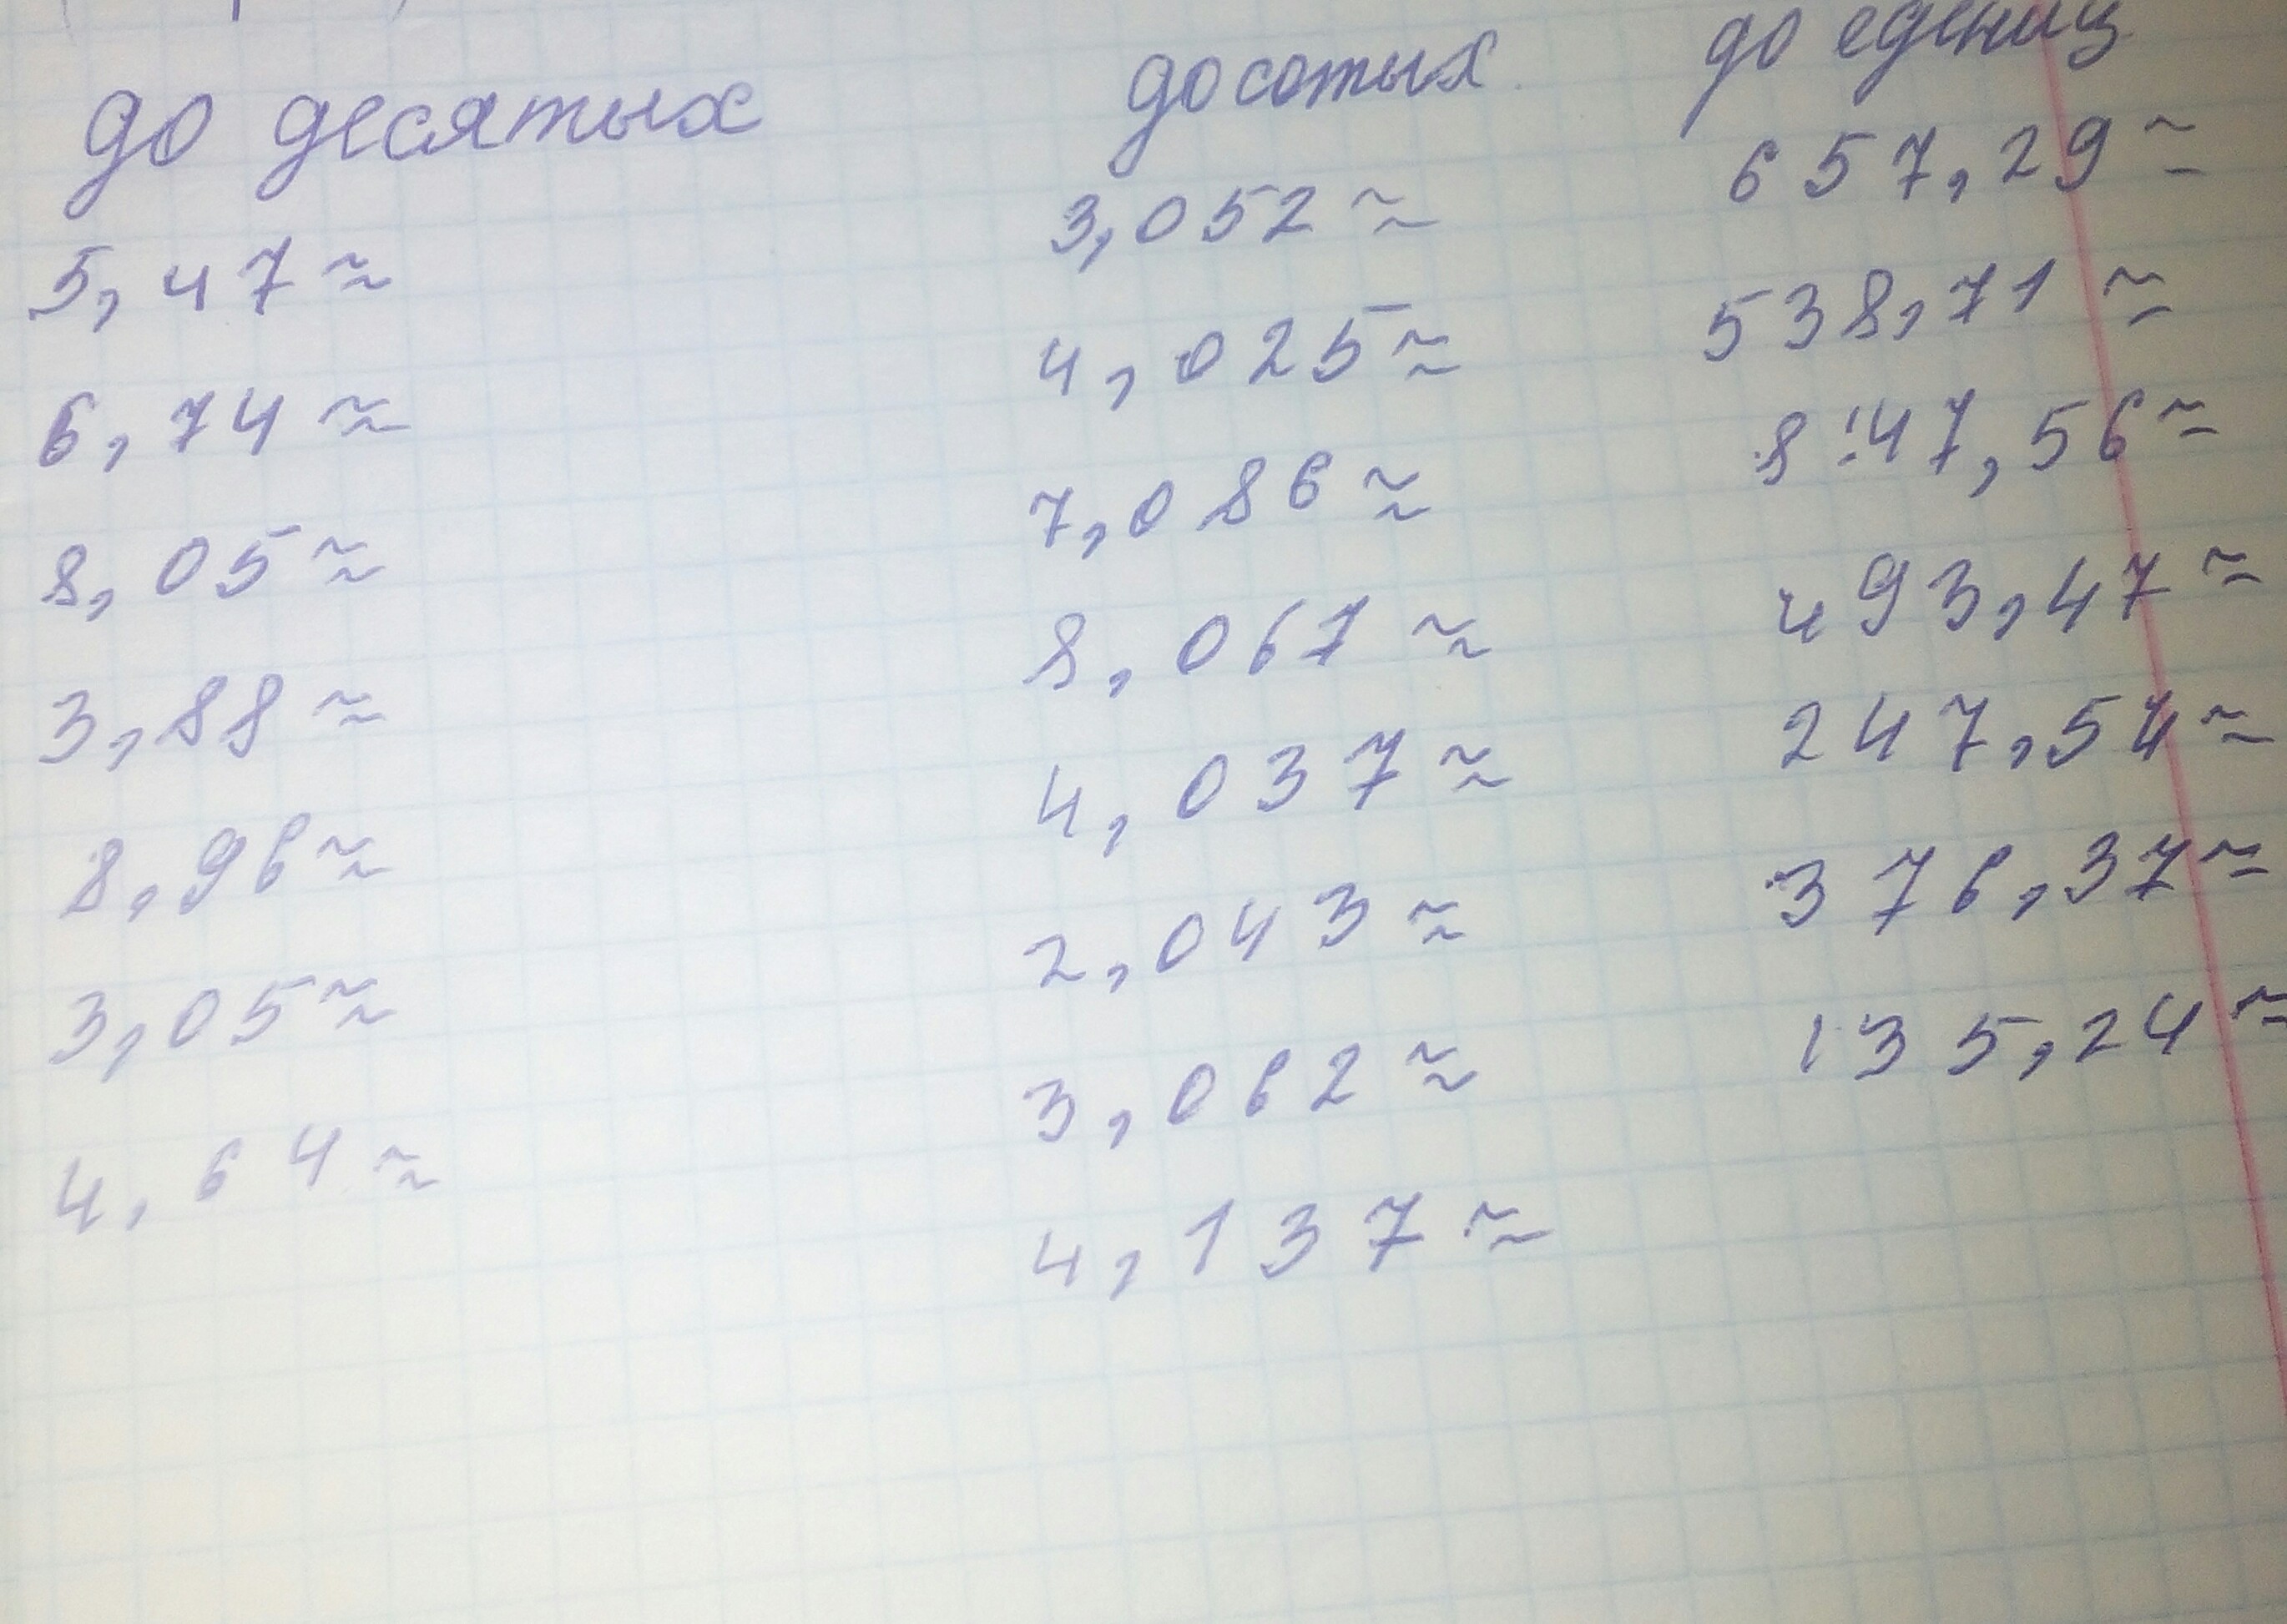 до десятых
5,47≈
6,74≈
8,05≈
3,88≈
8,96≈
3,05≈
4,64≈
до сотых
3,052≈
4,025≈
7,086≈
8,067≈
4,037≈
2,043≈
3,062≈
4,137≈
до едениц
657,29≈
538,71≈
847,56≈
493,47≈
247,54≈
376,37≈
135,24≈